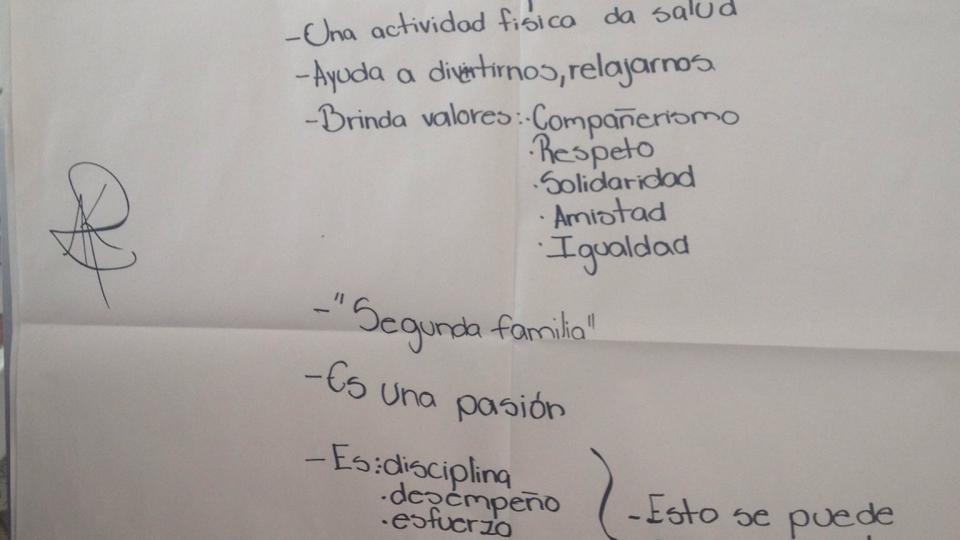 -Una actividad física da salud
-Ayuda a divertirnos, relajarnos.
-Brinda valores: ·Compañerismo
·Respeto
·Solidaridad
·Amistad
·Igualdad
-"Segunda familia"
-Es una pasión
-Es: disciplina
·desempeño
·esfuerzo
-Esto se puede